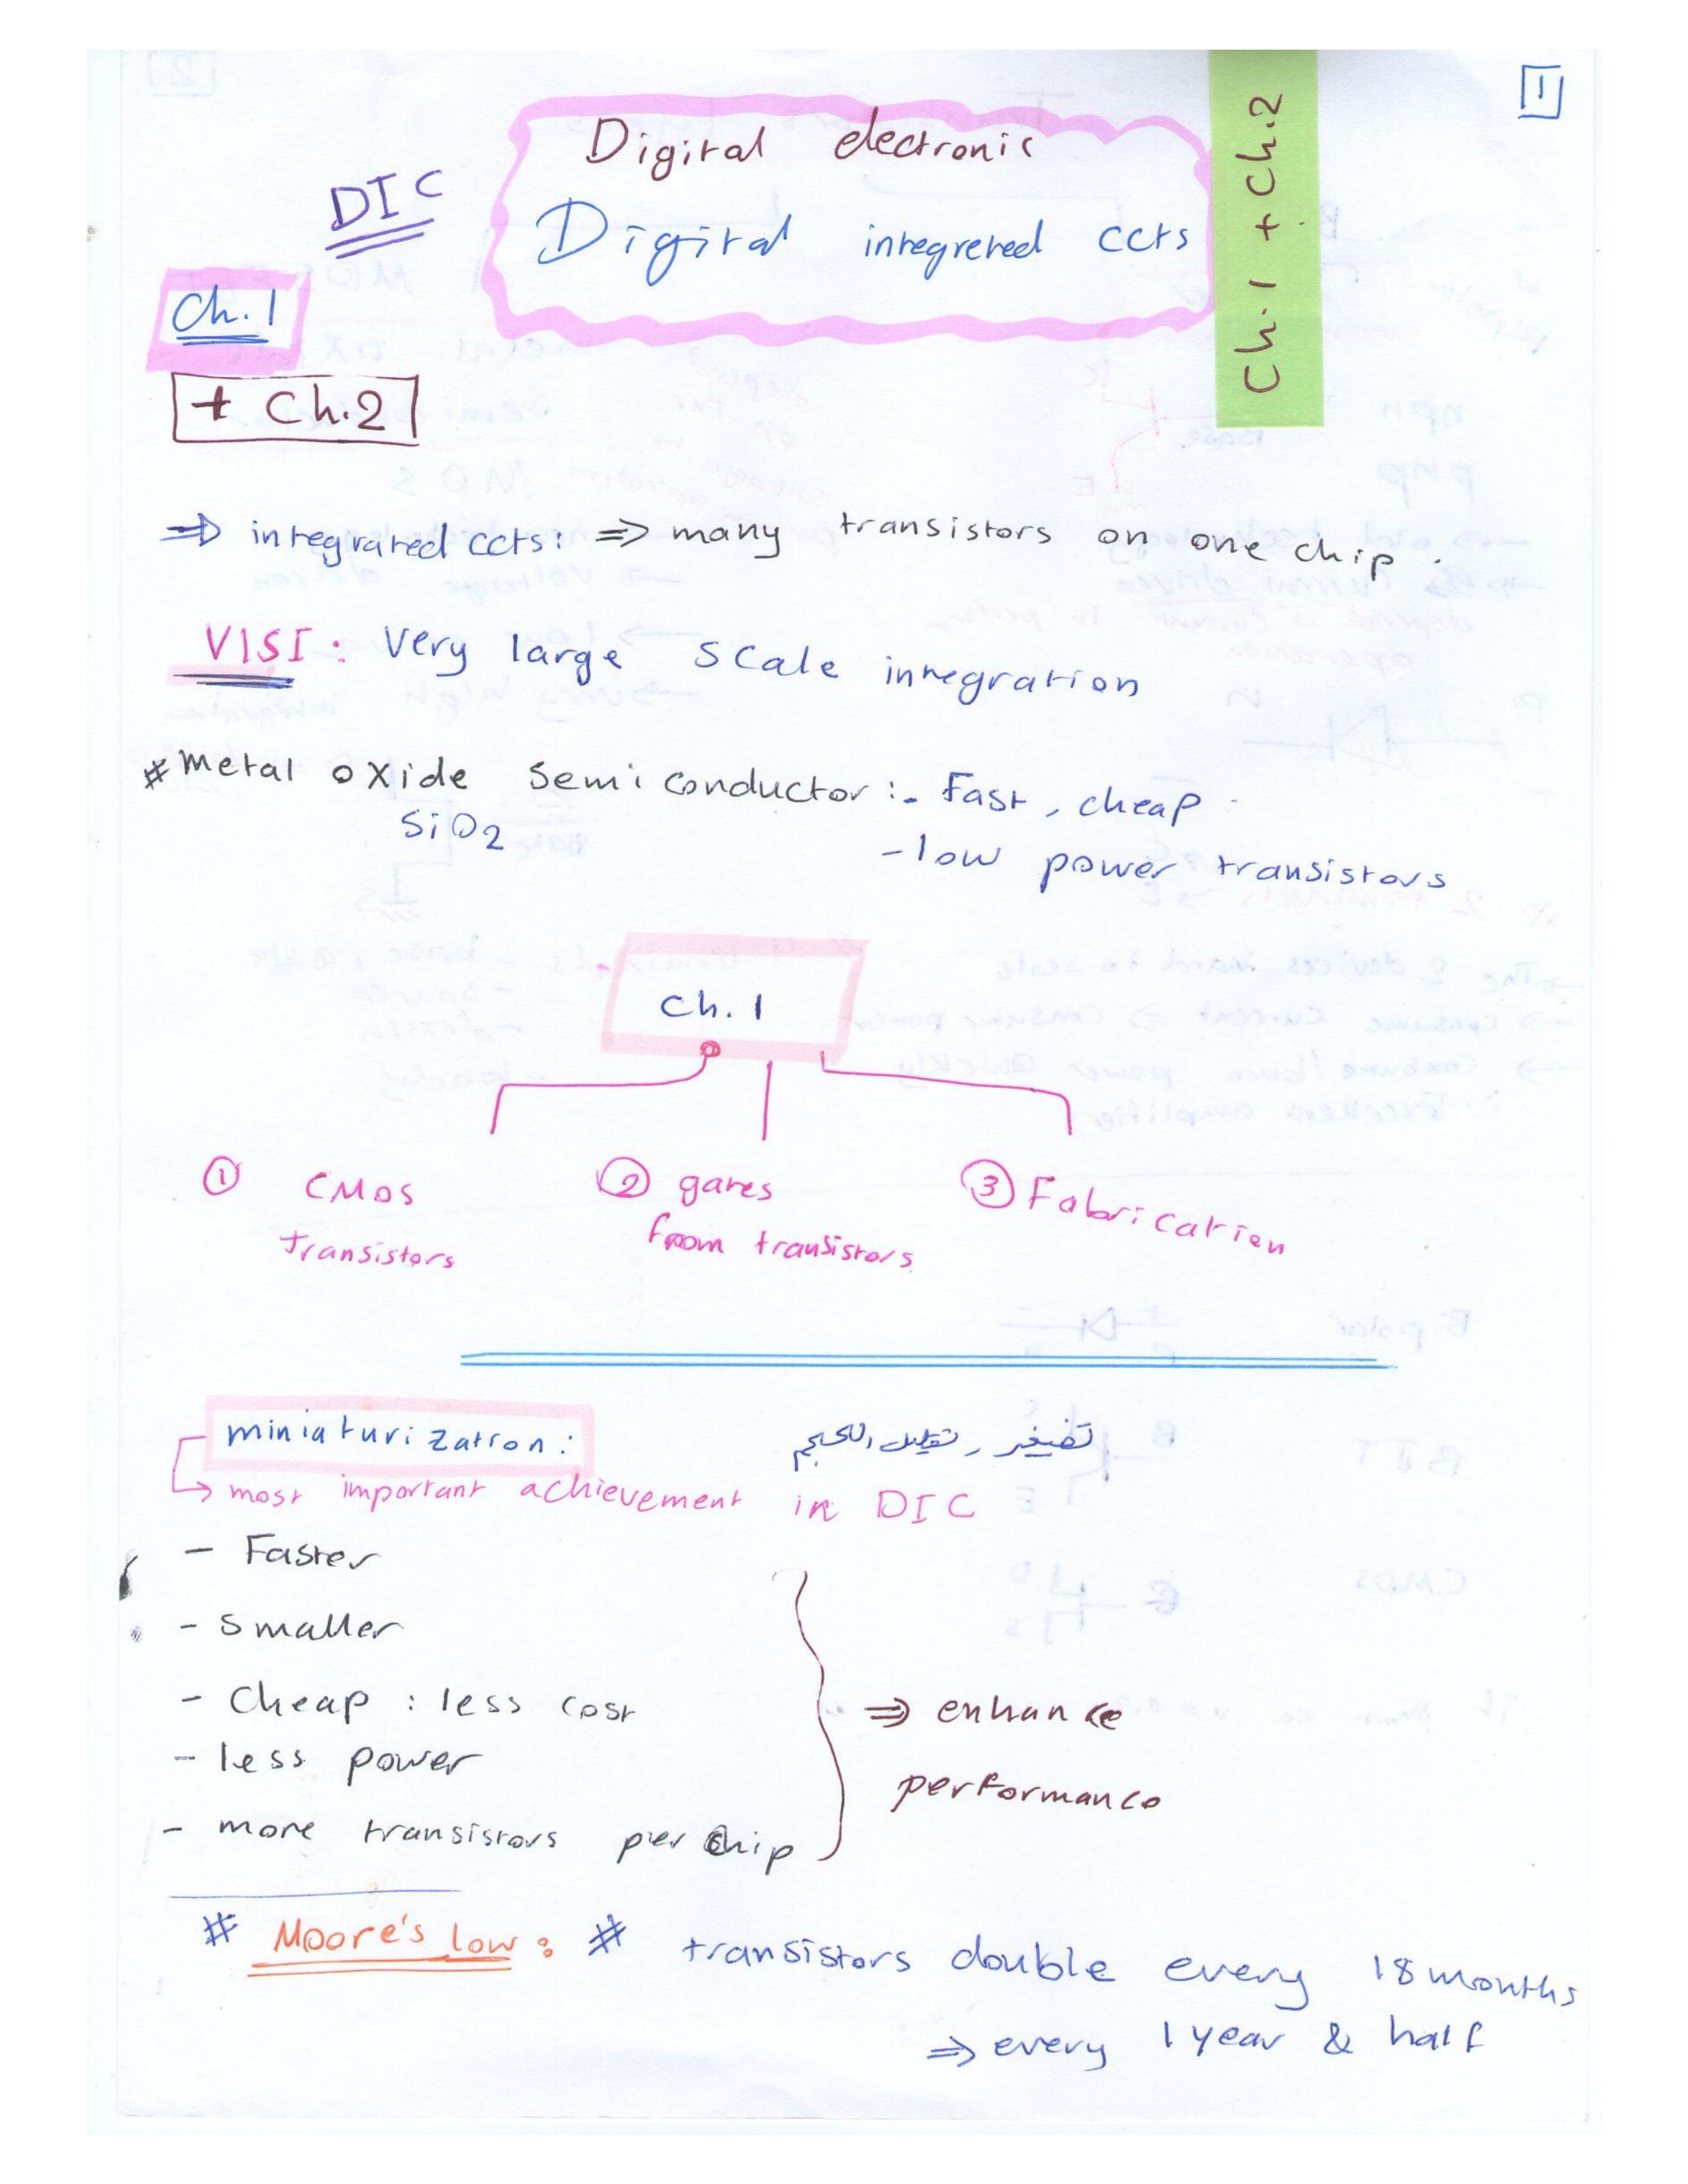 1
Ch.1 + Ch.2
Digital electronic
DIC
Digital integreted ccts
Ch.1
+ Ch.2
⇒ integrated ccts: ⇒ many transistors on one chip.
VlSI: Very large scale integration
# Metal oxide semiconductor:- Fast, cheap
SiO2
- low power transistors
Ch. 1
① CMOS
transistors
② gates
from transistors
③ Fabrication
miniaturization:
تصغير، تقليل الحجم
↳ most important achievement in DIC
- Faster
- Smaller
- Cheap : less cost
- less power
- more transistors per chip
⇒ enhance
performance
# Moore's low: # transistors double every 18 months
⇒ every 1 year & half